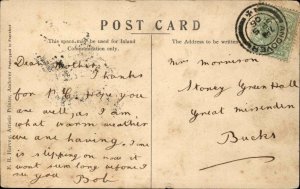 POST CARD
This space may be used for Inland
Communication only.
The Address to be written
Dear Mother
Thanks
for P.C. Hope you
are well as I am,
what warm weather
we are having. Time
is slipping on now it
wont seem long before I
see you Bob
Mrs Morrison
Stoney Green Hall
Great Missenden
Bucks
F. R. Harvey, Artistic Printer, Andover